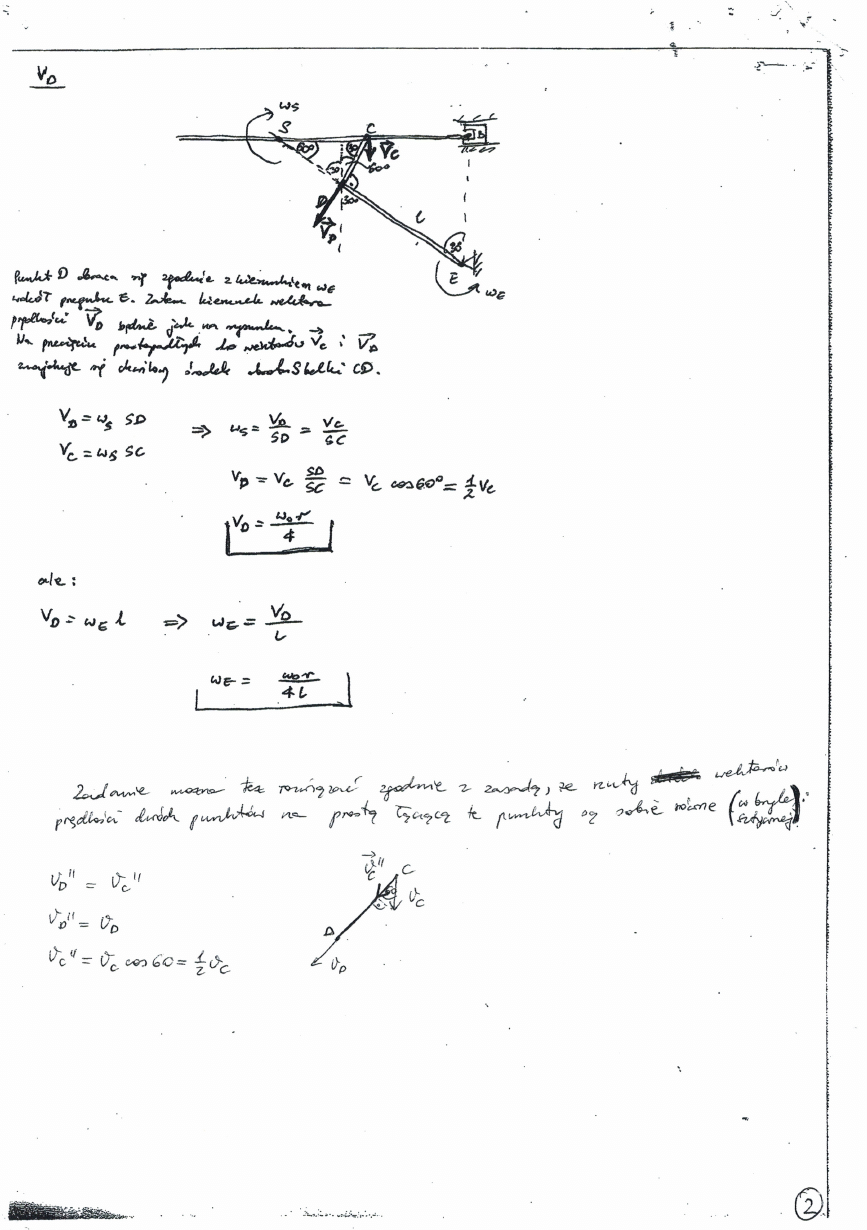 V_D
ω_S
S
C
B
60°
30
V⃗_C
30
60°
D
30°
V⃗_D
l
30
E
ω_E
Punkt D obraca się zgodnie z kierunkiem ω_E
wokół przegubu E. Zatem kierunek wektora
prędkości V⃗_D będzie jak na rysunku.
Na przecięciu prostopadłych do wektorów V⃗_C i V⃗_D
znajduje się chwilowy środek obrotu S belki CD.
V_D = ω_S SD
V_C = ω_S SC
⇒ ω_S = V_D/SD = V_C/SC
V_D = V_C SD/SC = V_C cos60° = 1/2 V_C
V_D = ω_0 r/4
ale:
V_D = ω_E l ⇒ ω_E = V_D/L
ω_E = ω_0 r/4L
Zadanie można też rozwiązać zgodnie z zasadą, że rzuty wektorów
prędkości dwóch punktów na prostą łączącą te punkty są sobie równe (w bryle sztywnej):
υ_D'' = υ_C''
υ_D'' = υ_D
υ_C'' = υ_C cos60 = 1/2 υ_C
υ⃗_C''
C
60
υ_C
D
υ_D
2